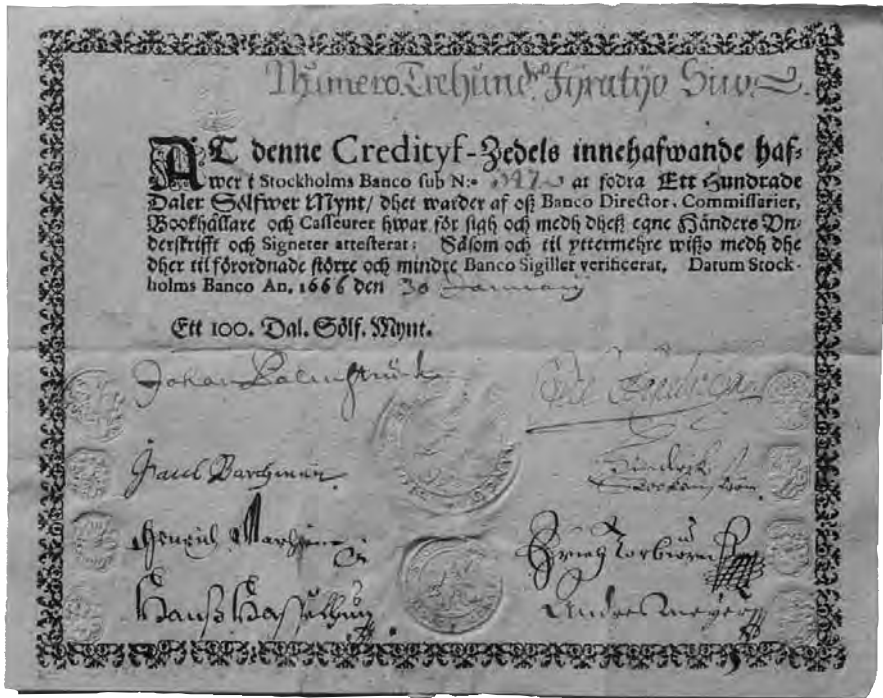 Numero Trehund. Fÿratijo Siw.
AT denne Credityf-Zedels innehafwande haf-
wer i Stockholms Banco sub N:º 347 at fodra Ett Hundrade
Daler Sölfwer Mynt/ dhet warder af oß Banco Director, Commissarier,
Bookhållare och Casseurer hwar för sigh och medh dheß egne Händers Vn-
derskrifft och Signeter attesterat; Såsom och til yttermehre wißo medh dhe
dher til förordnade större och mindre Banco Sigiller verificerat, Datum Stock-
holms Banco An. 1666 den 30 January
Ett 100. Dal. Sölf. Mynt.
Johan Palmstruck
Paul Barchman
Hendrich
Henrich
Torbiörn
Hanß
Anders Meÿer